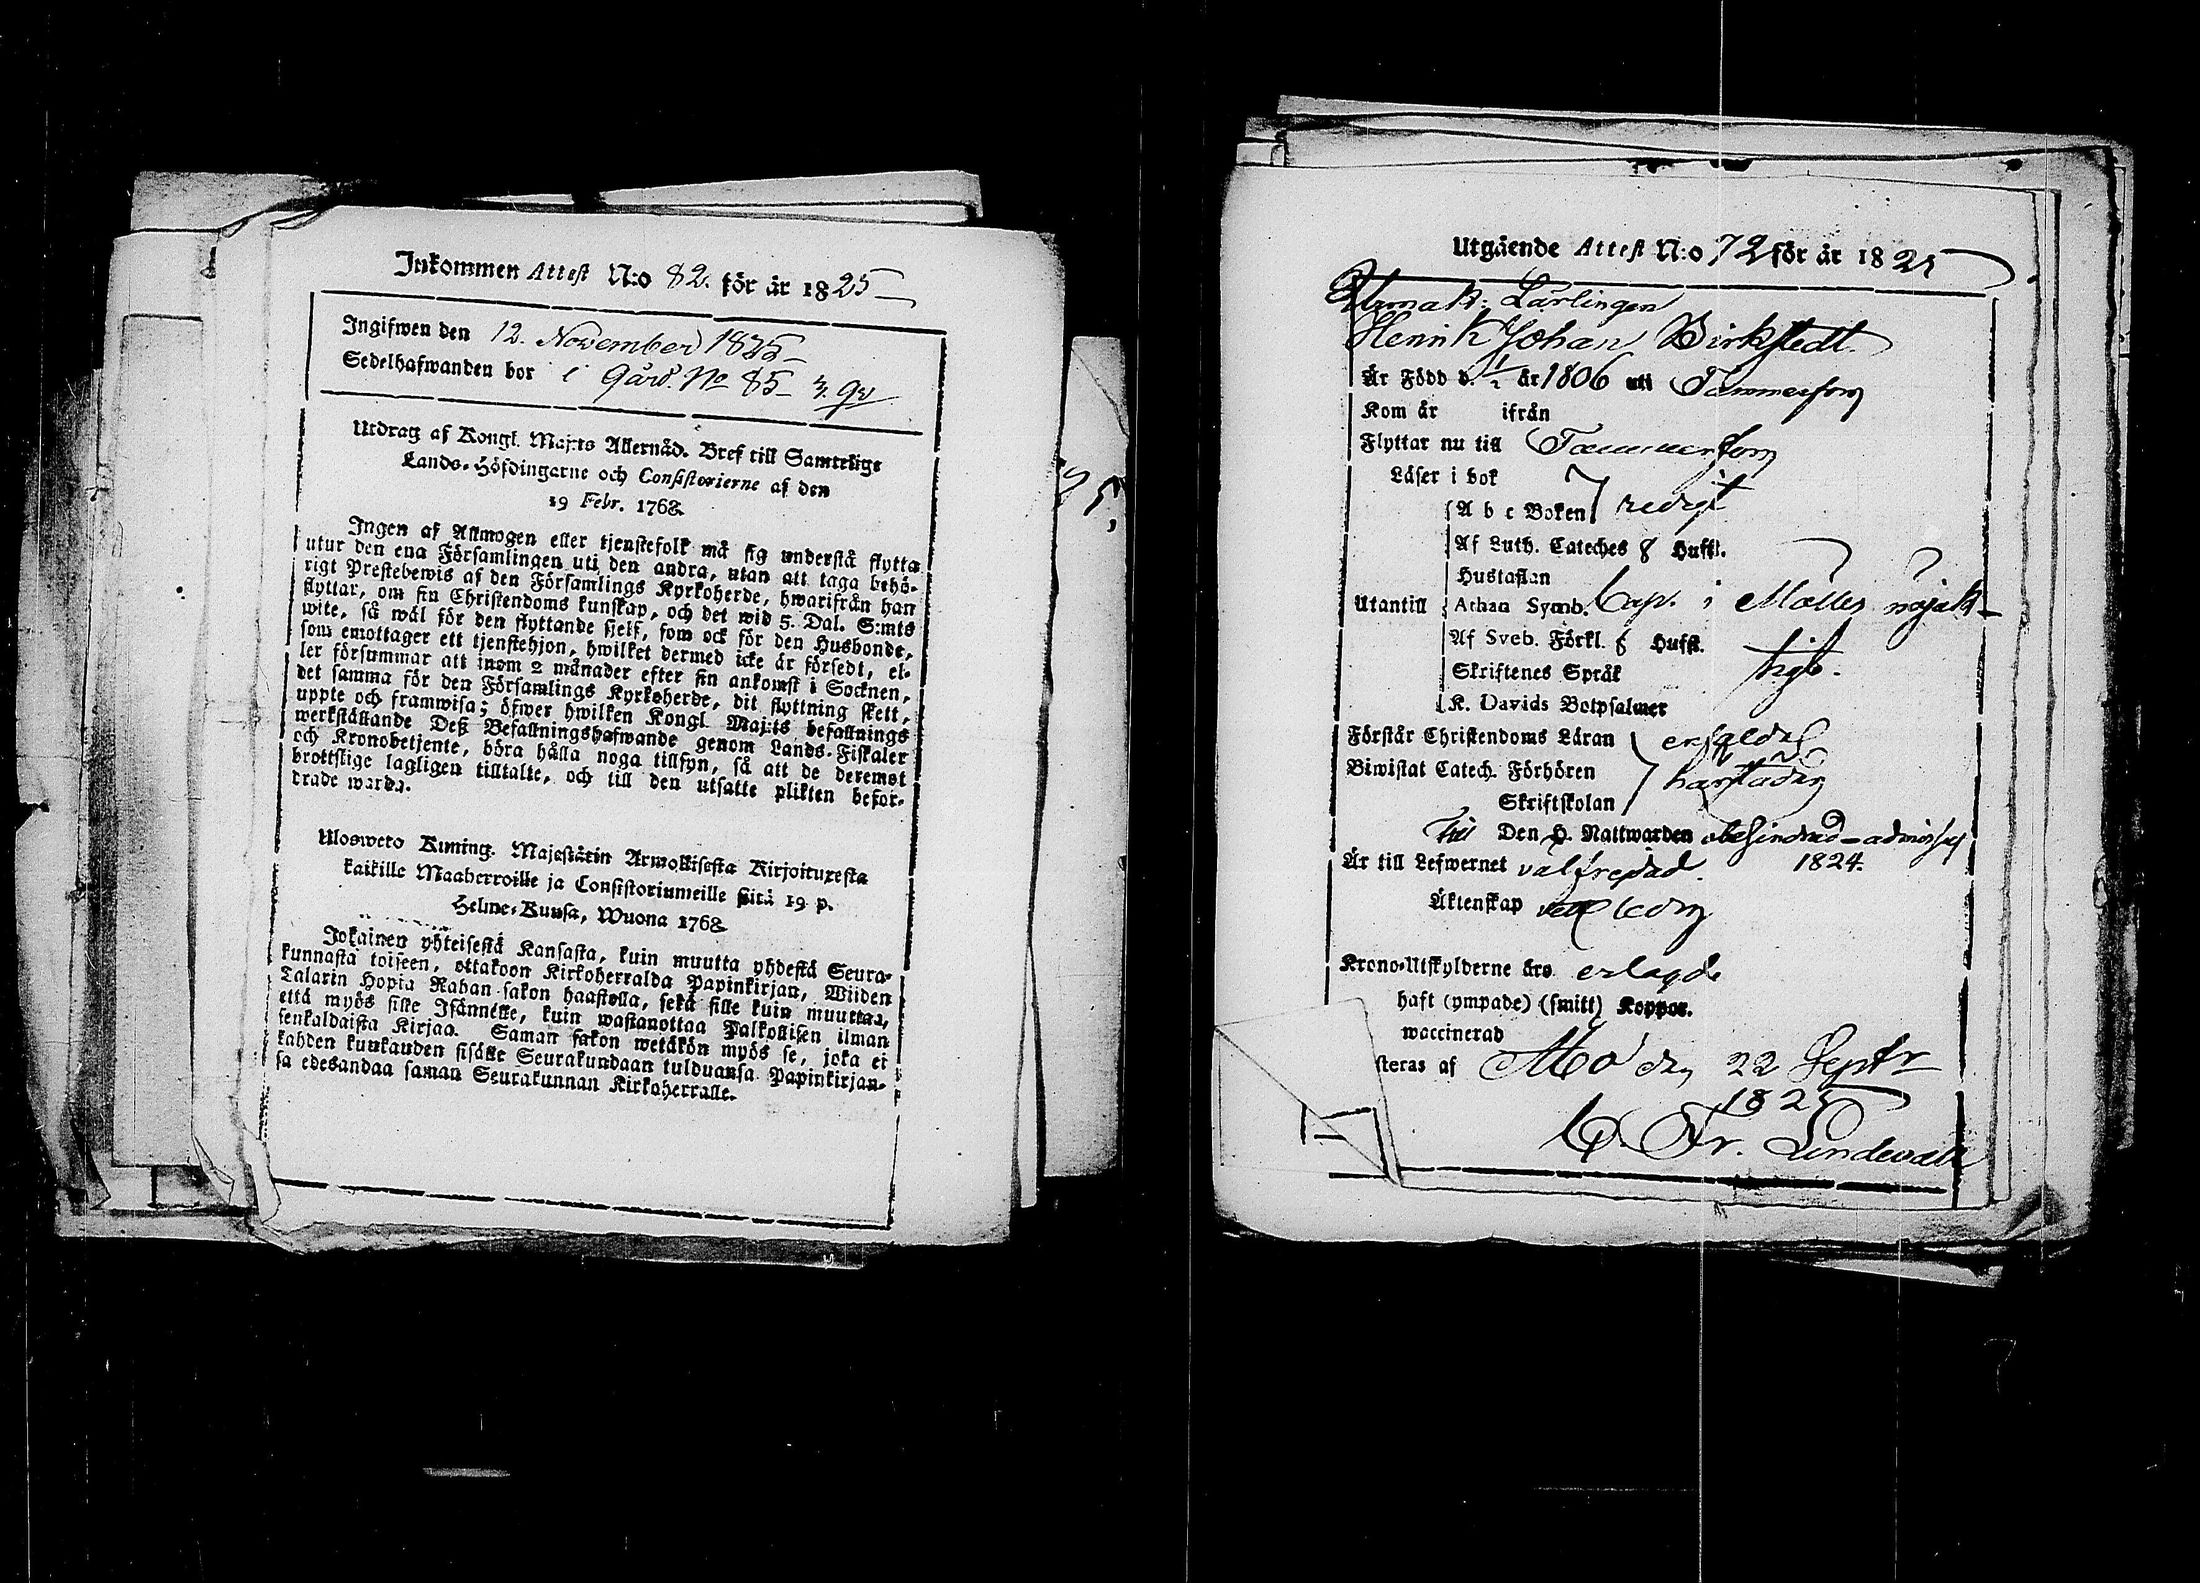 Inkommen Attest N:o 82. för år 1825
Ingifwen den 12. November 1825
Sedelhafwanden bor i gård No 85 3. qv
Utdrag af Kongl. Maj:ts Allernåd. Bref till Samtelige
Lands-Höfdingarne och Consistorierne af den
19 Febr. 1768.
Ingen af Allmogen eller tjenstefolk må sig understå flytta
utur den ena Församlingen uti den andra, utan att taga behö-
rigt Prestebewis af den Församlings Kyrkoherde, hwarifrån han
flyttar, om sin Christendoms kunskap, och det wid 5. Dal. S:mts
wite, så wäl för den flyttande sjelf, som ock för den Husbonde,
som emottager ett tjenstehjon, hwilket dermed icke är försedt, el-
ler försummar att inom 2 månader efter sin ankomst i Socknen,
det samma för den Församlings Kyrkoherde, dit flyttning skett,
uppte och framwisa; öfwer hwilken Kongl. Maj:ts befallnings
werkställande Deß Befallningshafwande genom Lands-Fiskaler
och Kronobetjente, böra hålla noga tillsyn, så att de deremot
brottslige lagligen tilltalte, och till den utsatte plikten befor-
drade warda.
Ulosweto Kuning. Majestätin Armollisesta Kirjoituxesta
kaikille Maaherroille ja Consistoriumeille siitä 19 p.
Helme-Kuusa, Wuona 1768
Jokainen yhteisestä Kansasta, kuin muutta yhdestä Seura-
kunnasta toiseen, ottakoon Kirkoherralda Papinkirjan, Wiiden
Talarin Hopia Rahan sakon haastolla, sekä sille kuin muuttaa,
että myös sille Isännelle, kuin wastanottaa Palkollisen ilman
senkaldaista Kirjaa. Saman sakon wetäkön myös se, joka ei
kahden kuukauden sisälle Seurakundaan tulduansa Papinkirjan-
sa edesandaa saman Seurakunnan Kirkoherralle.
25,
Utgående Attest N:o 72 för år 1825
Lärlingen
Henrik Johan Birkstedt
Är Född d. 1/2 år 1806 uti Tammerfors
Kom år ifrån
Flyttar nu till Tammerfors
Läser i bok
A b c Boken redigt
Af Luth. Cateches 8 Hufst.
Hustaflan
Utantill Athan Symb. Cap. i Möllers nöjak-
Af Sveb. Förkl. 8 Hufst.
Skriftenes Språk tigt.
K. Davids Botpsalmer
Förstår Christendoms Läran
Biwistat Catech. Förhören
Skriftskolan
Till Den H. Nattwarden obehindrad - admiss.
Är till Lefwernet välfrejdad. 1824.
Äktenskap ledig
Krono-Utskylderne äro erlagde
haft (ympade) (smitt) Koppor.
waccinerad
steras af Åbo d. 22 Septr
1825
C. Fr. Lindevall